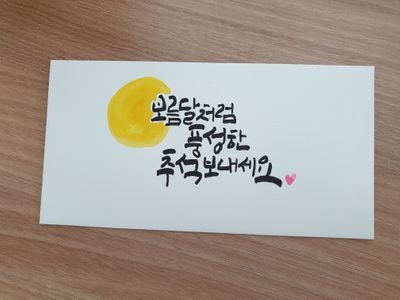 보름달처럼
풍성한
추석보내세요